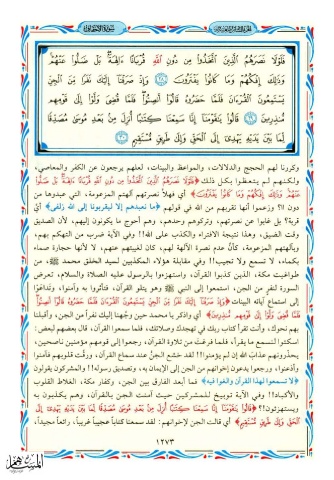 الجزء السادس والعشرون سورة الأحقاف
فَلَوْلَا نَصَرَهُمُ الَّذِينَ اتَّخَذُوا مِن دُونِ اللَّهِ قُرْبَانًا آلِهَةً بَلْ ضَلُّوا عَنْهُمْ
وَذَلِكَ إِفْكُهُمْ وَمَا كَانُوا يَفْتَرُونَ ٢٨ وَإِذْ صَرَفْنَا إِلَيْكَ نَفَرًا مِّنَ الْجِنِّ
يَسْتَمِعُونَ الْقُرْآنَ فَلَمَّا حَضَرُوهُ قَالُوا أَنصِتُوا فَلَمَّا قُضِيَ وَلَّوْا إِلَى قَوْمِهِم
مُّنذِرِينَ ٢٩ قَالُوا يَا قَوْمَنَا إِنَّا سَمِعْنَا كِتَابًا أُنزِلَ مِن بَعْدِ مُوسَى مُصَدِّقًا
لِّمَا بَيْنَ يَدَيْهِ يَهْدِي إِلَى الْحَقِّ وَإِلَى طَرِيقٍ مُّسْتَقِيمٍ ٣٠
وكررنا لهم الحجج والدلالات، والمواعظ والبينات، لعلهم يرجعون عن الكفر والمعاصي،
ولكنهم لم يتعظوا بكل ذلك ﴿فَلَوْلَا نَصَرَهُمُ الَّذِينَ اتَّخَذُوا مِن دُونِ اللَّهِ قُرْبَانًا آلِهَةً بَلْ ضَلُّوا
عَنْهُمْ وَذَلِكَ إِفْكُهُمْ وَمَا كَانُوا يَفْتَرُونَ﴾ أي فهلاَّ نصرتهم آلهتهم المزعومة، التي عبدوها من
دون الله؟ وزعموا أنها تقربهم من الله في قولهم ﴿ما نعبدهم إلا ليقربونا إلى الله زلفى﴾ أي
قربة؟ بل غابوا عن نصرتهم، وتركوهم وحدهم، وهم أحوج ما يكونون إليهم، لأن الصديق
وقت الضيق، وهذا نتيجة الافتراء والكذب على الله!! وفي الآية ضرب من التهكم بهم،
وبآلهتهم المزعومة، كأنَّ عدم نصرة الآلهة لهم، كان لغيبتهم عنهم، لا لأنها حجارة صماء
بكماء، لا تسمع ولا تجيب!! وفي مقابلة هؤلاء المكذبين لسيد الخلق محمد ﷺ، من
طواغيت مكة، الذين كذبوا القرآن، واستهزءوا بالرسول عليه الصلاة والسلام، تعرض
السورة لنفرٍ من الجن، استمعوا إلى النبي ﷺ وهو يتلو القرآن، فتأثروا به وآمنوا، وتداعَوْا
إلى استماع آياته البينات ﴿وَإِذْ صَرَفْنَا إِلَيْكَ نَفَرًا مِّنَ الْجِنِّ يَسْتَمِعُونَ الْقُرْآنَ فَلَمَّا حَضَرُوهُ قَالُوا أَنصِتُوا
فَلَمَّا قُضِيَ وَلَّوْا إِلَى قَوْمِهِم مُّنذِرِينَ﴾ أي واذكر يا محمد حين وجَّهنا إليك نفراً من الجن، وأقبلنا
بهم نحوك، وأنت تقرأ كتاب ربك في تهجدك وصلاتك، فلما سمعوا القرآن، قال بعضهم لبعض:
اسكتوا لنسمع ما يقرأ، فلما فرغت من تلاوة القرآن، رجعوا إلى قومهم مؤمنين ناصحين،
يحذّرونهم عذاب الله إن لم يؤمنوا!! لقد خشع الجنُّ عند سماع القرآن، ورقَّت قلوبهم فآمنوا
وأذعنوا، ورجعوا يدعون إخوانهم من الجن إلى الإيمان به، وتصديق رسوله!! والمشركون يقولون
﴿لا تسمعوا لهذا القرآن والغوا فيه﴾ فما أبعد الفارق بين الجن، وكفار مكة، الغلاظ القلوب
والأكباد!! وفي الآية توبيخ للمشركين حيث آمنت الجن بالقرآن، وهم يكذبون به
ويستهزئون!!؟ ﴿قَالُوا يَا قَوْمَنَا إِنَّا سَمِعْنَا كِتَابًا أُنزِلَ مِن بَعْدِ مُوسَى مُصَدِّقًا لِّمَا بَيْنَ يَدَيْهِ يَهْدِي إِلَى
الْحَقِّ وَإِلَى طَرِيقٍ مُّسْتَقِيمٍ﴾ أي قالت الجن لإخوانهم: لقد سمعنا كتاباً عجيباً غريباً، رائعاً مجيداً،
١٢٧٣